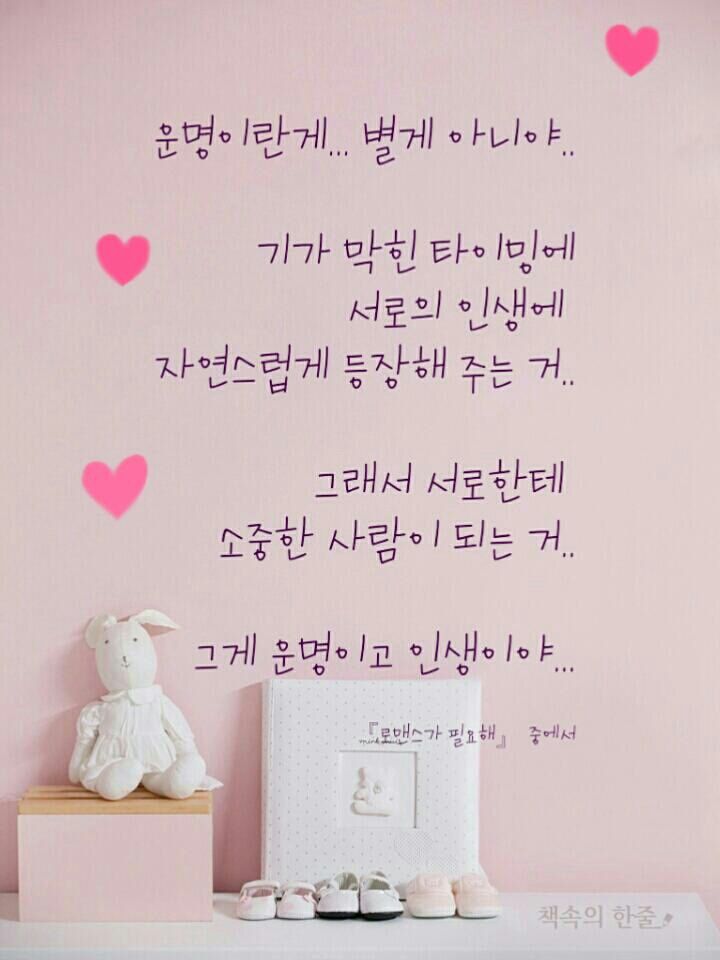 운명이란게... 별게 아니야..
기가 막힌 타이밍에
서로의 인생에
자연스럽게 등장해 주는 거..
그래서 서로한테
소중한 사람이 되는 거..
그게 운명이고 인생이야...
『로맨스가 필요해』 중에서
책속의 한줄